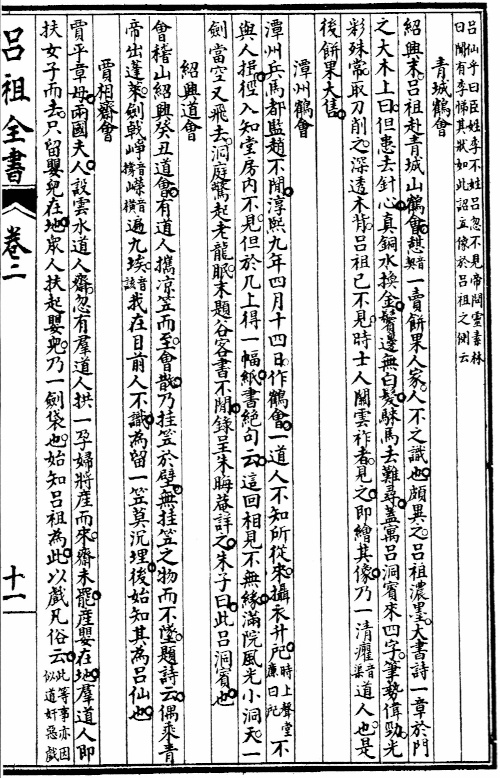 呂仙乎曰臣姓李不姓呂忽不見帝問靈素林
曰聞有李悌其狀如此詔立像於呂祖之側云
青城鶴會
紹興末呂祖赴青城山鶴會憇音器一賣餅果人家人不之識也頗異之呂祖濃墨大書詩一章於門
之大木上曰但患去針心真銅水換金鬢邊無白髮騋馬去難尋蓋寓呂洞賓來四字筆勢偉勁光
彩殊常取刀削之深透木背呂祖已不見時士人關雲祚者見之即繪其像乃一清癯音渠道人也是
後餅果大售
潭州鶴會
潭州兵馬都監趙不閒淳熙九年四月十四日作鶴會一道人不知所從來攝衣升㞐時上聲堂不
與人揖徑入知堂房內不見但於几上得一幅紙書絕句云這回相見不無緣滿院風光小洞天一
劍當空又飛去洞庭驚起老龍眠末題谷客書不閒錄呈朱晦菴詳之朱子曰此呂洞賓也
紹興道會
會稽山紹興癸丑道會有道人攜凉笠而至會散乃挂笠於壁無挂笠之物而不墜題詩云偶乘青
帝出蓬萊劍戟崢嶸遍九垓音該我在目前人不識為留一笠莫沉埋後始知其為呂仙也
賈相齋會
賈平章母兩國夫人設雲水道人齋忽有羣道人拱一孕婦將產而來齋未罷產嬰在地羣道人即
扶女子而去只留嬰兒在地眾人扶起嬰兒乃一劍袋也始知呂祖為此以戲凡俗云此等事亦因似道奸惡戲
呂祖全書
卷二
十一